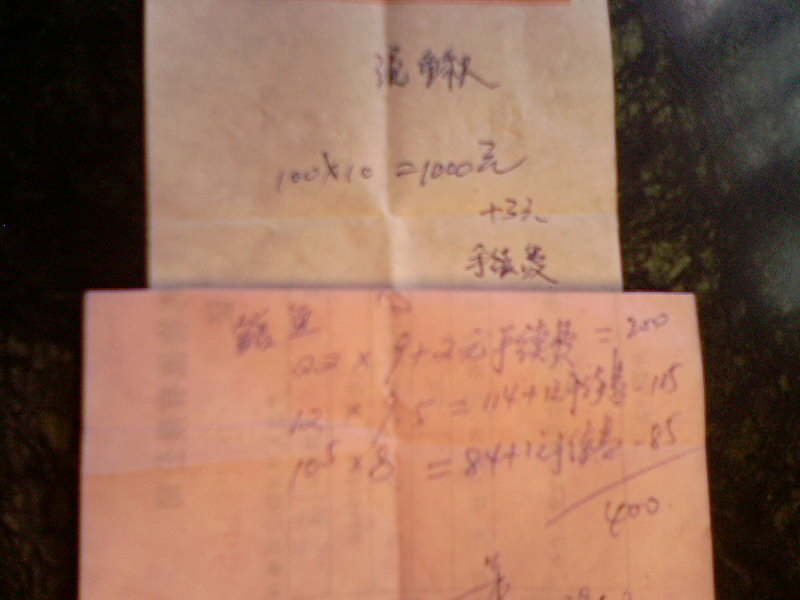 泥鳅
100×10=1000元
+3元
手续费
22×9+2元手续费=200
12×9.5=114+1元手续费-115
10⁵×8=84+1元手续费-85
400